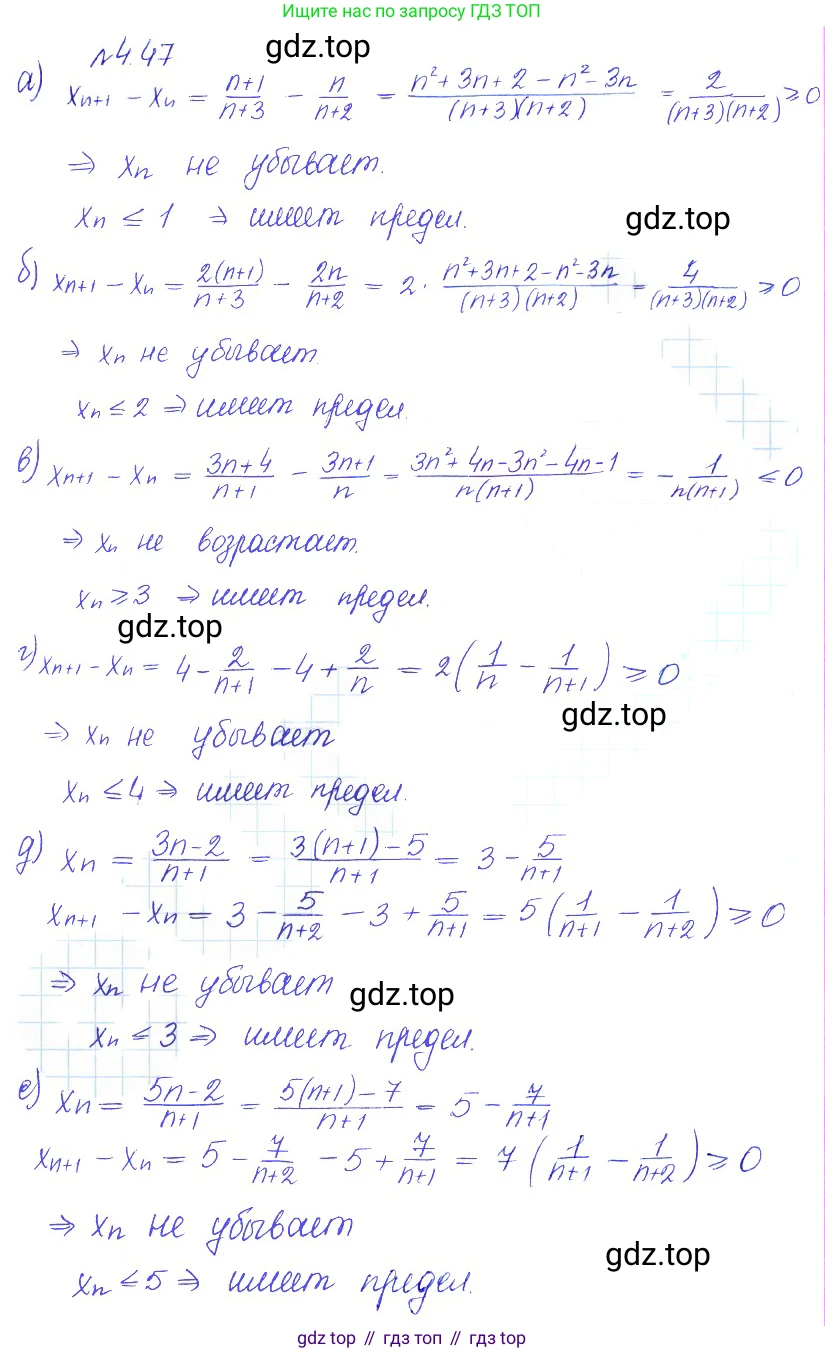 Ищите нас по запросу ГДЗ ТОП
№4.47 gdz.top
а) xₙ₊₁ - xₙ = (n+1)/(n+3) - n/(n+2) = (n²+3n+2-n²-3n)/((n+3)(n+2)) = 2/((n+3)(n+2)) ≥ 0
⇒ xₙ не убывает.
xₙ ≤ 1 ⇒ имеет предел. gdz.top
б) xₙ₊₁ - xₙ = 2(n+1)/(n+3) - 2n/(n+2) = 2 · (n²+3n+2-n²-3n)/((n+3)(n+2)) = 4/((n+3)(n+2)) ≥ 0
⇒ xₙ не убывает.
xₙ ≤ 2 ⇒ имеет предел.
в) xₙ₊₁ - xₙ = (3n+4)/(n+1) - (3n+1)/n = (3n²+4n-3n²-4n-1)/(n(n+1)) = - 1/(n(n+1)) ≤ 0
⇒ xₙ не возрастает.
xₙ ≥ 3 ⇒ имеет предел.
gdz.top
г) xₙ₊₁ - xₙ = 4 - 2/(n+1) - 4 + 2/n = 2(1/n - 1/(n+1)) ≥ 0
gdz.top
⇒ xₙ не убывает
xₙ ≤ 4 ⇒ имеет предел.
д) xₙ = (3n-2)/(n+1) = (3(n+1)-5)/(n+1) = 3 - 5/(n+1)
xₙ₊₁ - xₙ = 3 - 5/(n+2) - 3 + 5/(n+1) = 5(1/(n+1) - 1/(n+2)) ≥ 0
⇒ xₙ не убывает gdz.top
xₙ ≤ 3 ⇒ имеет предел.
е) xₙ = (5n-2)/(n+1) = (5(n+1)-7)/(n+1) = 5 - 7/(n+1)
xₙ₊₁ - xₙ = 5 - 7/(n+2) - 5 + 7/(n+1) = 7(1/(n+1) - 1/(n+2)) ≥ 0
⇒ xₙ не убывает
gdz.top
xₙ ≤ 5 ⇒ имеет предел.
gdz top // гдз топ // gdz top